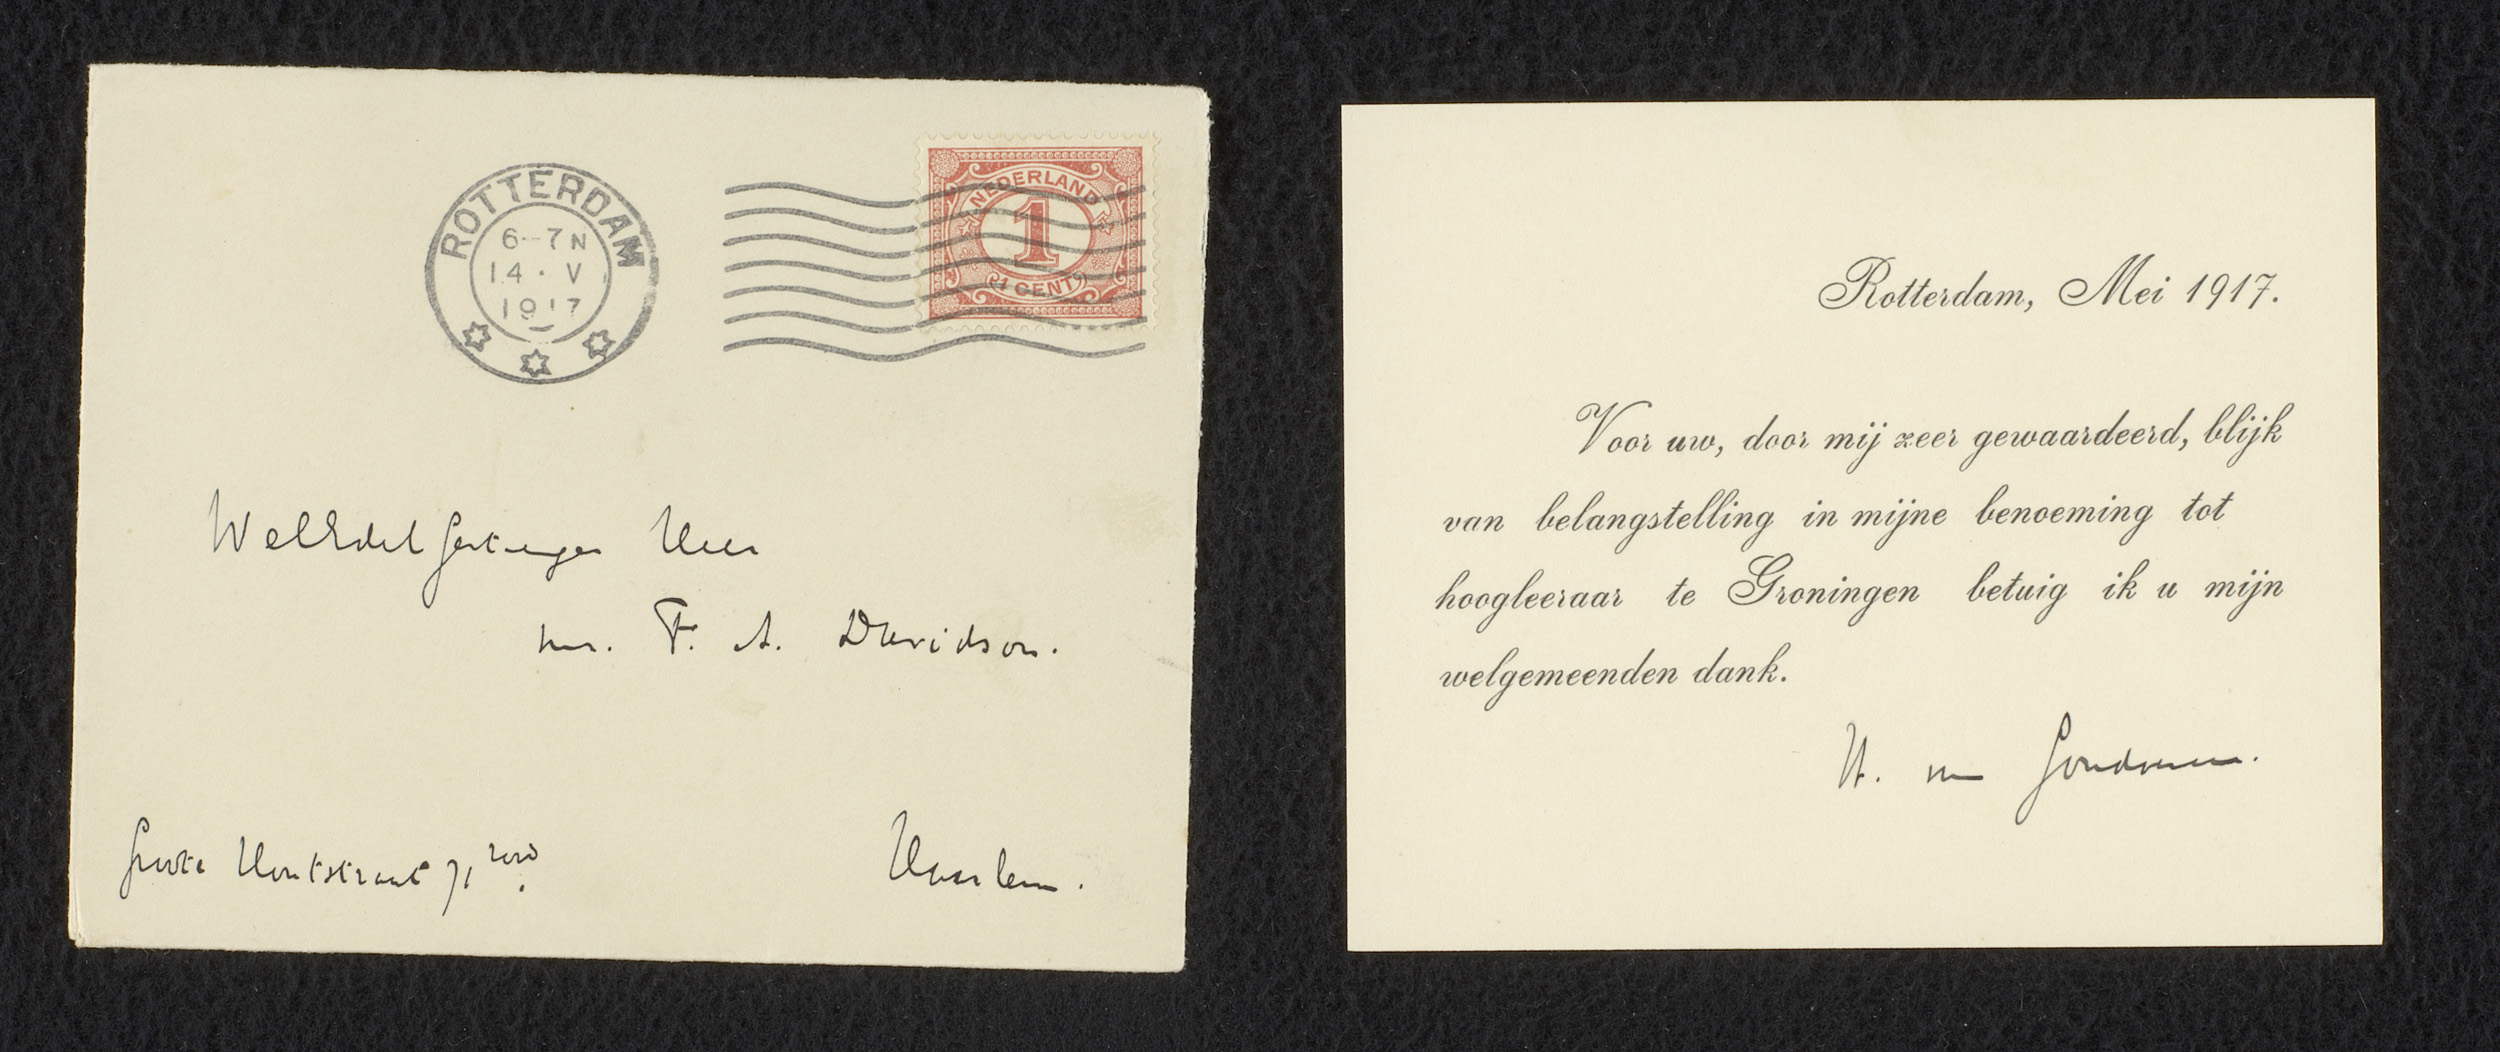 ROTTERDAM
6-7N
14 · V
1917
NEDERLAND
1
1 CENT
WelEdelGestrenger Heer
mr. F. A. Davidson.
Groote Houtstraat 71 rood.
Haarlem.
Rotterdam, Mei 1917.
Voor uw, door mij zeer gewaardeerd, blijk
van belangstelling in mijne benoeming tot
hoogleeraar te Groningen betuig ik u mijn
welgemeenden dank.